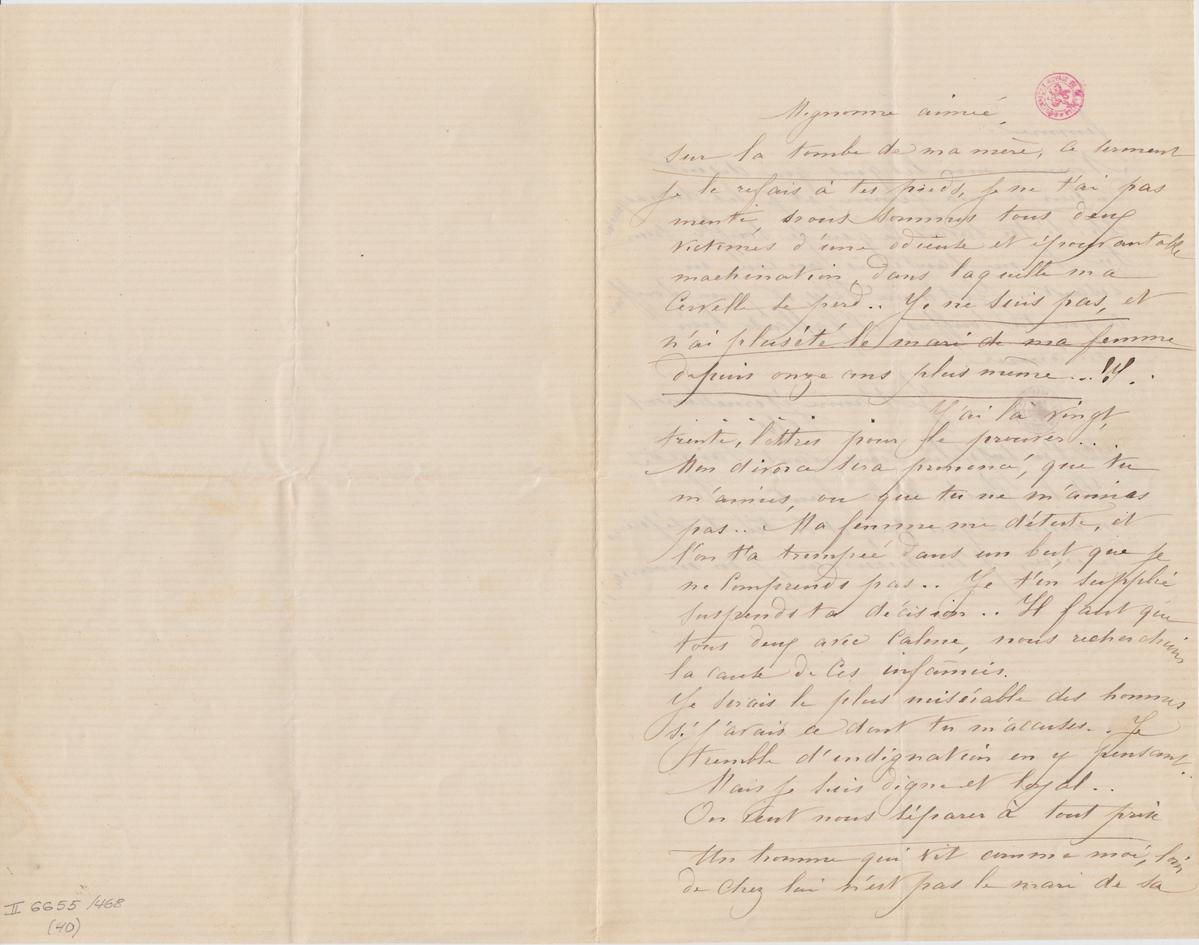 Mignonne aimée,
sur la tombe de ma mère, ce serment
je le refais à tes pieds, je ne t'ai pas
menti nous sommes tous deux
victimes d'une odieuse et épouvantable
machination, dans laquelle ma
cervelle se perd.. Je ne suis pas, et
n'ai plus été le mari de ma femme
depuis onze ans plus même...!!.
J'ai là vingt,
trente, lettres pour le prouver...
Mon divorce sera prononcé, que tu
m'aimes, ou que tu ne m'aimes
pas... Ma femme me déteste, et
l'on t'a trompée dans un but que je
ne comprends pas.. Je t'en supplie
suspends ta décision.. Il faut que
tous deux avec calme, nous recherchions
la cause de ces infamies.
Je serais le plus misérable des hommes
si j'avais ce dont tu m'accuses.. Je
tremble d'indignation en y pensant..
Mais je suis digne et loyal..
On veut nous séparer à tout prix
Un homme qui vit comme moi, loin
de chez lui n'est pas le mari de sa
II 6655 /468
(40)